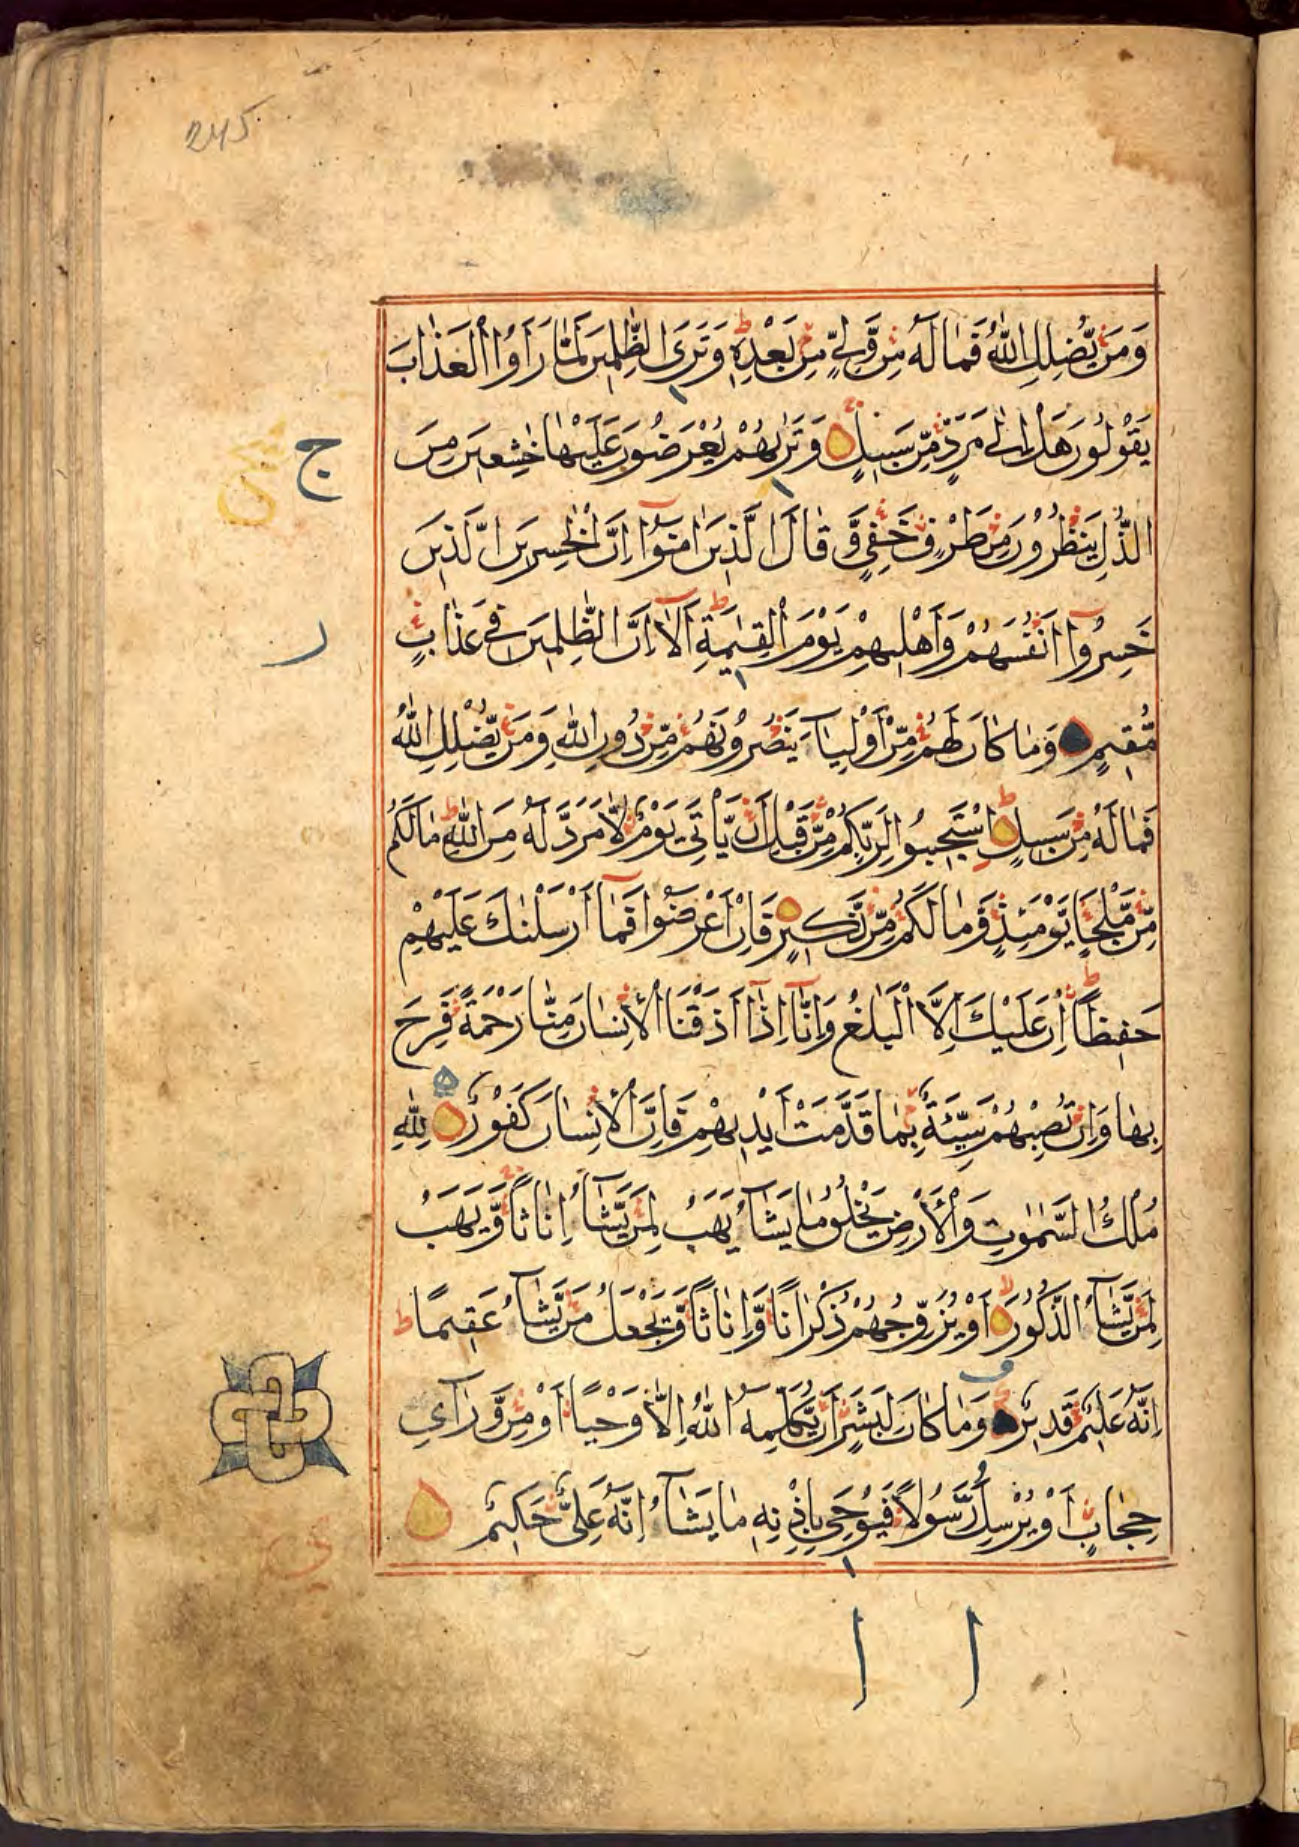 245
وَمَنْ يُّضْلِلِ اللّٰهُ فَمَا لَهٗ مِنْ وَّلِيٍّ مِنْ بَعْدِهٖ ط وَتَرَى الظّٰلِمِيْنَ لَمَّا رَاَوُا الْعَذَابَ
يَقُوْلُوْنَ هَلْ اِلٰى مَرَدٍّ مِّنْ سَبِيْلٍ وَتَرٰىهُمْ يُعْرَضُوْنَ عَلَيْهَا خٰشِعِيْنَ مِنَ
ج
الذُّلِّ يَنْظُرُوْنَ مِنْ طَرْفٍ خَفِيٍّ وَّقَالَ الَّذِيْنَ اٰمَنُوْٓا اِنَّ الْخٰسِرِيْنَ الَّذِيْنَ
خَسِرُوْٓا اَنْفُسَهُمْ وَاَهْلِيْهِمْ يَوْمَ الْقِيٰمَةِ ط اَلَآ اِنَّ الظّٰلِمِيْنَ فِيْ عَذَابٍ
ر
مُّقِيْمٍ وَمَا كَانَ لَهُمْ مِّنْ اَوْلِيَآءَ يَنْصُرُوْنَهُمْ مِّنْ دُوْنِ اللّٰهِ وَمَنْ يُّضْلِلِ اللّٰهُ
فَمَا لَهٗ مِنْ سَبِيْلٍ ط اِسْتَجِيْبُوْا لِرَبِّكُمْ مِّنْ قَبْلِ اَنْ يَّاْتِيَ يَوْمٌ لَّا مَرَدَّ لَهٗ مِنَ اللّٰهِ ط مَا لَكُمْ
مِّنْ مَّلْجَاٍ يَّوْمَئِذٍ وَّمَا لَكُمْ مِّنْ نَّكِيْرٍ فَاِنْ اَعْرَضُوْا فَمَآ اَرْسَلْنٰكَ عَلَيْهِمْ
حَفِيْظًا ط اِنْ عَلَيْكَ اِلَّا الْبَلٰغُ وَاِنَّآ اِذَآ اَذَقْنَا الْاِنْسَانَ مِنَّا رَحْمَةً فَرِحَ
بِهَا وَاِنْ تُصِبْهُمْ سَيِّئَةٌ بِمَا قَدَّمَتْ اَيْدِيْهِمْ فَاِنَّ الْاِنْسَانَ كَفُوْرٌ لِلّٰهِ
مُلْكُ السَّمٰوٰتِ وَالْاَرْضِ يَخْلُقُ مَا يَشَآءُ يَهَبُ لِمَنْ يَّشَآءُ اِنَاثًا وَّيَهَبُ
لِمَنْ يَّشَآءُ الذُّكُوْرَ لا اَوْ يُزَوِّجُهُمْ ذُكْرَانًا وَّاِنَاثًا وَّيَجْعَلُ مَنْ يَّشَآءُ عَقِيْمًا ط
اِنَّهٗ عَلِيْمٌ قَدِيْرٌ وَمَا كَانَ لِبَشَرٍ اَنْ يُّكَلِّمَهُ اللّٰهُ اِلَّا وَحْيًا اَوْ مِنْ وَّرَآئِ
حِجَابٍ اَوْ يُرْسِلَ رَسُوْلًا فَيُوْحِيَ بِاِذْنِهٖ مَا يَشَآءُ اِنَّهٗ عَلِيٌّ حَكِيْمٌ
ي
ا ا